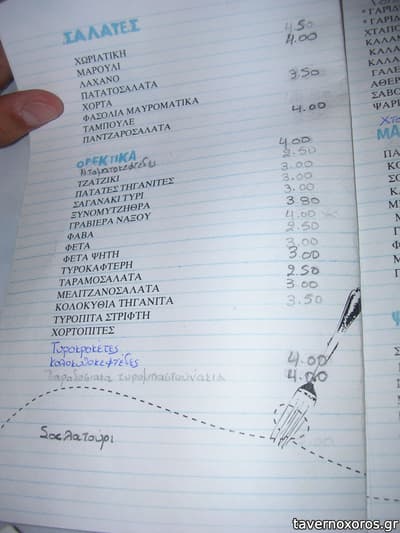 ΣΑΛΑΤΕΣ
ΧΩΡΙΑΤΙΚΗ 4.50
ΜΑΡΟΥΛΙ 4.00
ΛΑΧΑΝΟ
ΠΑΤΑΤΟΣΑΛΑΤΑ 3.50
ΧΟΡΤΑ
ΦΑΣΟΛΙΑ ΜΑΥΡΟΜΑΤΙΚΑ 4.00
ΤΑΜΠΟΥΛΕ
ΠΑΝΤΖΑΡΟΣΑΛΑΤΑ
ΟΡΕΚΤΙΚΑ
Ντοματοκεφτέδες 4.00
ΤΖΑΤΖΙΚΙ 2.50
ΠΑΤΑΤΕΣ ΤΗΓΑΝΙΤΕΣ 3.00
ΣΑΓΑΝΑΚΙ ΤΥΡΙ 3.00
ΞΥΝΟΜΥΤΖΗΘΡΑ 3.00
ΓΡΑΒΙΕΡΑ ΝΑΞΟΥ 3.80
ΦΑΒΑ 4.00
ΦΕΤΑ 2.50
ΦΕΤΑ ΨΗΤΗ 3.00
ΤΥΡΟΚΑΦΤΕΡΗ 3.00
ΤΑΡΑΜΟΣΑΛΑΤΑ 2.50
ΜΕΛΙΤΖΑΝΟΣΑΛΑΤΑ 3.00
ΚΟΛΟΚΥΘΙΑ ΤΗΓΑΝΙΤΑ 3.50
ΤΥΡΟΠΙΤΑ ΣΤΡΙΦΤΗ
ΧΟΡΤΟΠΙΤΕΣ
Τυροκροκέτες
Κολοκυθοκεφτέδες 4.00
Παραδοσιακά τυρομπαστουνάκια 4.00
Σικλατούρι
tavernoxoros.gr